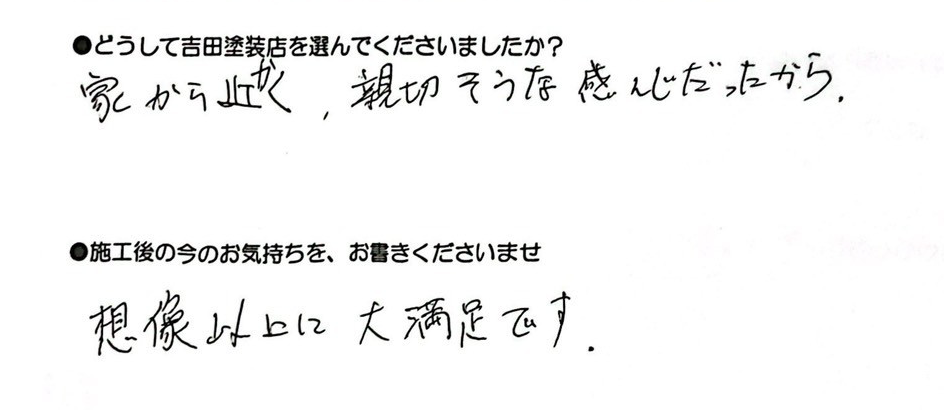 ●どうして吉田塗装店を選んでくださいましたか？
家から近く、親切そうな感んじだったから.
●施工後の今のお気持ちを、お書きくださいませ
想像以上に大満足です.